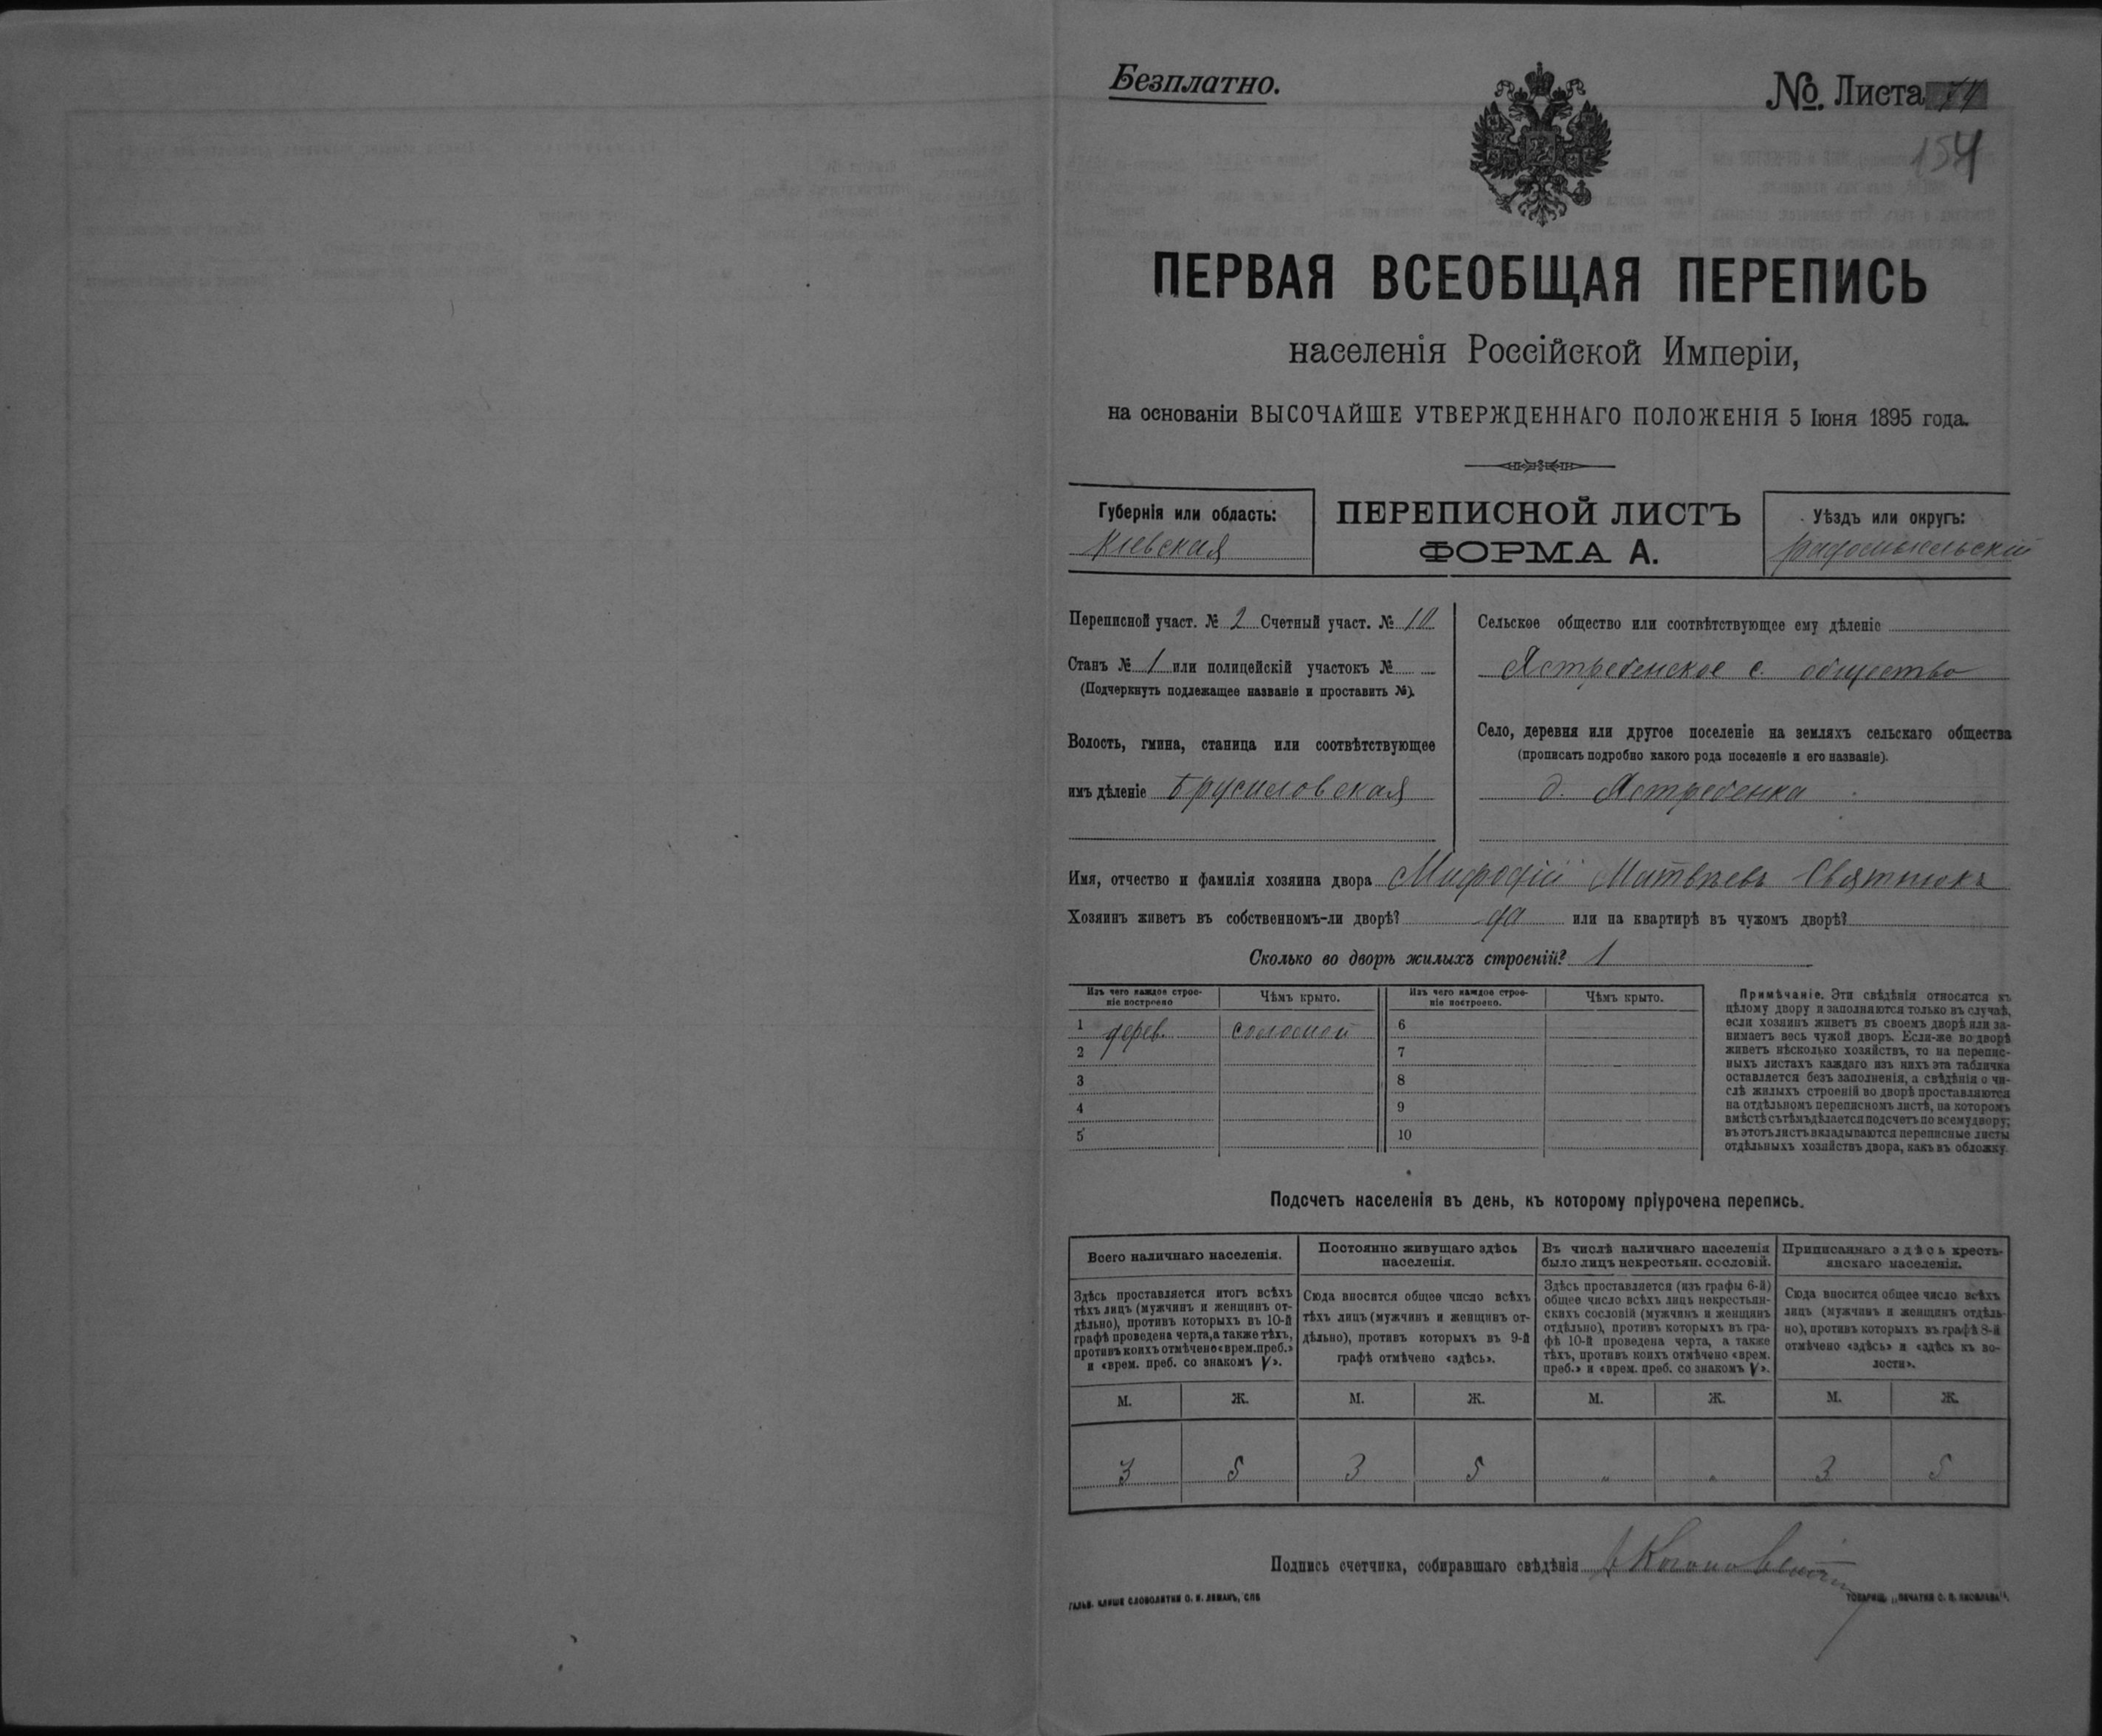 Безплатно.
№. Листа 74
154
ПЕРВАЯ ВСЕОБЩАЯ ПЕРЕПИСЬ
населенія Россійской Имперіи,
на основаніи ВЫСОЧАЙШЕ УТВЕРЖДЕННАГО ПОЛОЖЕНІЯ 5 Іюня 1895 года.
Губернія или область:
Кіевская
ПЕРЕПИСНОЙ ЛИСТЪ
ФОРМА А.
Уѣздъ или округъ:
Радомысльскій
Переписной участ. № 2 Счетный участ. № 10
Станъ № 1 или полицейскій участокъ №
(Подчеркнуть подлежащее названіе и проставить №).
Волость, гмина, станица или соотвѣтствующее
имъ дѣленіе Брусиловская
Сельское общество или соотвѣтствующее ему дѣленіе
Ястребенское с. общество
Село, деревня или другое поселеніе на земляхъ сельскаго общества
(прописать подробно какого рода поселеніе и его названіе).
д. Ястребенка
Имя, отчество и фамилія хозяина двора Мифодій Матвѣевъ Святтюкъ
Хозяинъ живетъ въ собственномъ-ли дворѣ? да или на квартирѣ въ чужомъ дворѣ?
Сколько во дворѣ жилыхъ строеній? 1
Изъ чего каждое строе-
ніе построено
Чѣмъ крыто.
Изъ чего каждое строе-
ніе построено.
Чѣмъ крыто.
1 дерев. соломой 6
2 7
3 8
4 9
5 10
Примѣчаніе. Эти свѣдѣнія относятся къ
цѣлому двору и заполняются только въ случаѣ,
если хозяинъ живетъ въ своемъ дворѣ или за-
нимаетъ весь чужой дворъ. Если-же во дворѣ
живетъ нѣсколько хозяйствъ, то на перепис-
ныхъ листахъ каждаго изъ нихъ эта табличка
оставляется безъ заполненія, а свѣдѣнія о чи-
слѣ жилыхъ строеній во дворѣ проставляются
на отдѣльномъ переписномъ листѣ, на которомъ
вмѣстѣ съ тѣмъ дѣлается подсчетъ по всему двору;
въ этотъ листъ вкладываются переписные листы
отдѣльныхъ хозяйствъ двора, какъ въ обложку.
Подсчетъ населенія въ день, къ которому пріурочена перепись.
Всего наличнаго населенія.
Здѣсь проставляется итогъ всѣхъ
тѣхъ лицъ (мужчинъ и женщинъ от-
дѣльно), противъ которыхъ въ 10-й
графѣ проведена черта, а также тѣхъ,
противъ коихъ отмѣчено «врем. преб.»
и «врем. преб. со знакомъ V».
Постоянно живущаго здѣсь
населенія.
Сюда вносится общее число всѣхъ
тѣхъ лицъ (мужчинъ и женщинъ от-
дѣльно), противъ которыхъ въ 9-й
графѣ отмѣчено «здѣсь».
Въ числѣ наличнаго населенія
было лицъ некрестьян. сословій.
Здѣсь проставляется (изъ графы 6-й)
общее число всѣхъ лицъ некрестьян-
скихъ сословій (мужчинъ и женщинъ
отдѣльно), противъ которыхъ въ гра-
фѣ 10-й проведена черта, а также
тѣхъ, противъ коихъ отмѣчено «врем.
преб.» и «врем. преб. со знакомъ V».
Приписаннаго здѣсь кресть-
янскаго населенія.
Сюда вносится общее число всѣхъ
лицъ (мужчинъ и женщинъ отдѣль-
но), противъ которыхъ въ графѣ 8-й
отмѣчено «здѣсь» и «здѣсь къ во-
лости».
М. Ж. М. Ж. М. Ж. М. Ж.
3 5 3 5 „ „ 3 5
Подпись счетчика, собиравшаго свѣдѣнія
ГАЛЬВ. КЛИШЕ СЛОВОЛИТНИ О. И. ЛЕМАНЪ, СПБ
ТОВАРИЩ. „ПЕЧАТНЯ С. П. ЯКОВЛЕВА“.